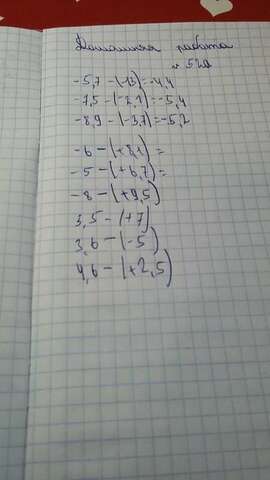 Домашняя работа
-5,7-(-1,3)=-4,4
-7,5-(-2,1)=-5,4
-8,9-(-3,7)=-5,2
-6-(+8,1)=
-5-(+6,7)=
-8-(+9,5)
3,5-(+7)
3,6-(-5)
4,6-(+2,5)